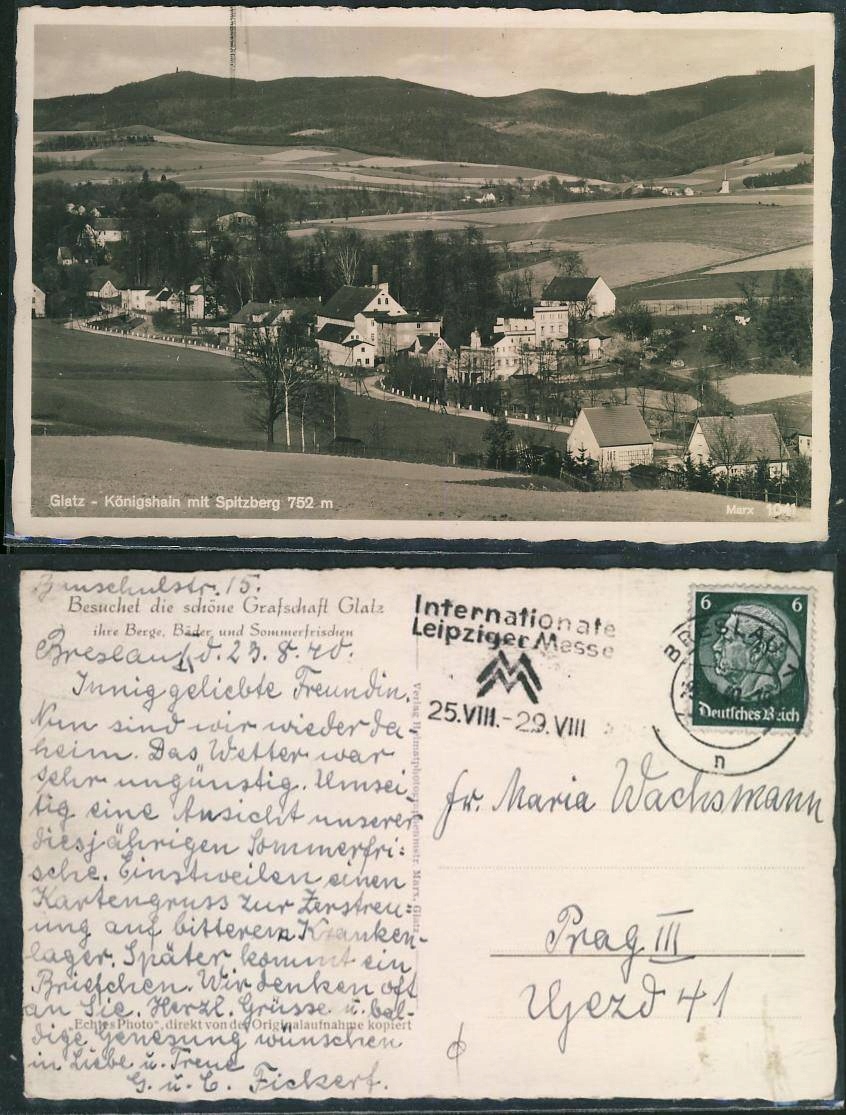 Glatz - Königshain mit Spitzberg 752 m
Marx 1041
str. 15.
Besuchet die schöne Grafschaft Glatz
ihre Berge, Bäder und Sommerfrischen
Breslau, d. 23.8.40.
Innig geliebte Freundin.
Nun sind wir wieder da-
heim. Das Wetter war
sehr ungünstig. Umsei-
tig eine Ansicht unserer
diesjährigen Sommerfri-
sche. Einstweilen einen
Kartengruss zur Zerstreu-
ung auf bitterem Kranken-
lager. Später kommt ein
Briefchen. Wir denken oft
an Sie. Herzl. Grüsse u. bal-
dige Genesung wünschen
in Liebe u. Treue
G. u. C. Fickert.
"Echtes Photo", direkt von der Originalaufnahme kopiert
Verlag Heimatphotographenmstr. Marx, Glatz
Internationale
Leipziger Messe
25.VIII.-29.VIII
BRESLAU
n
6 6
Deutsches Reich
Fr. Maria Wachsmann
Prag III
Ujezd 41